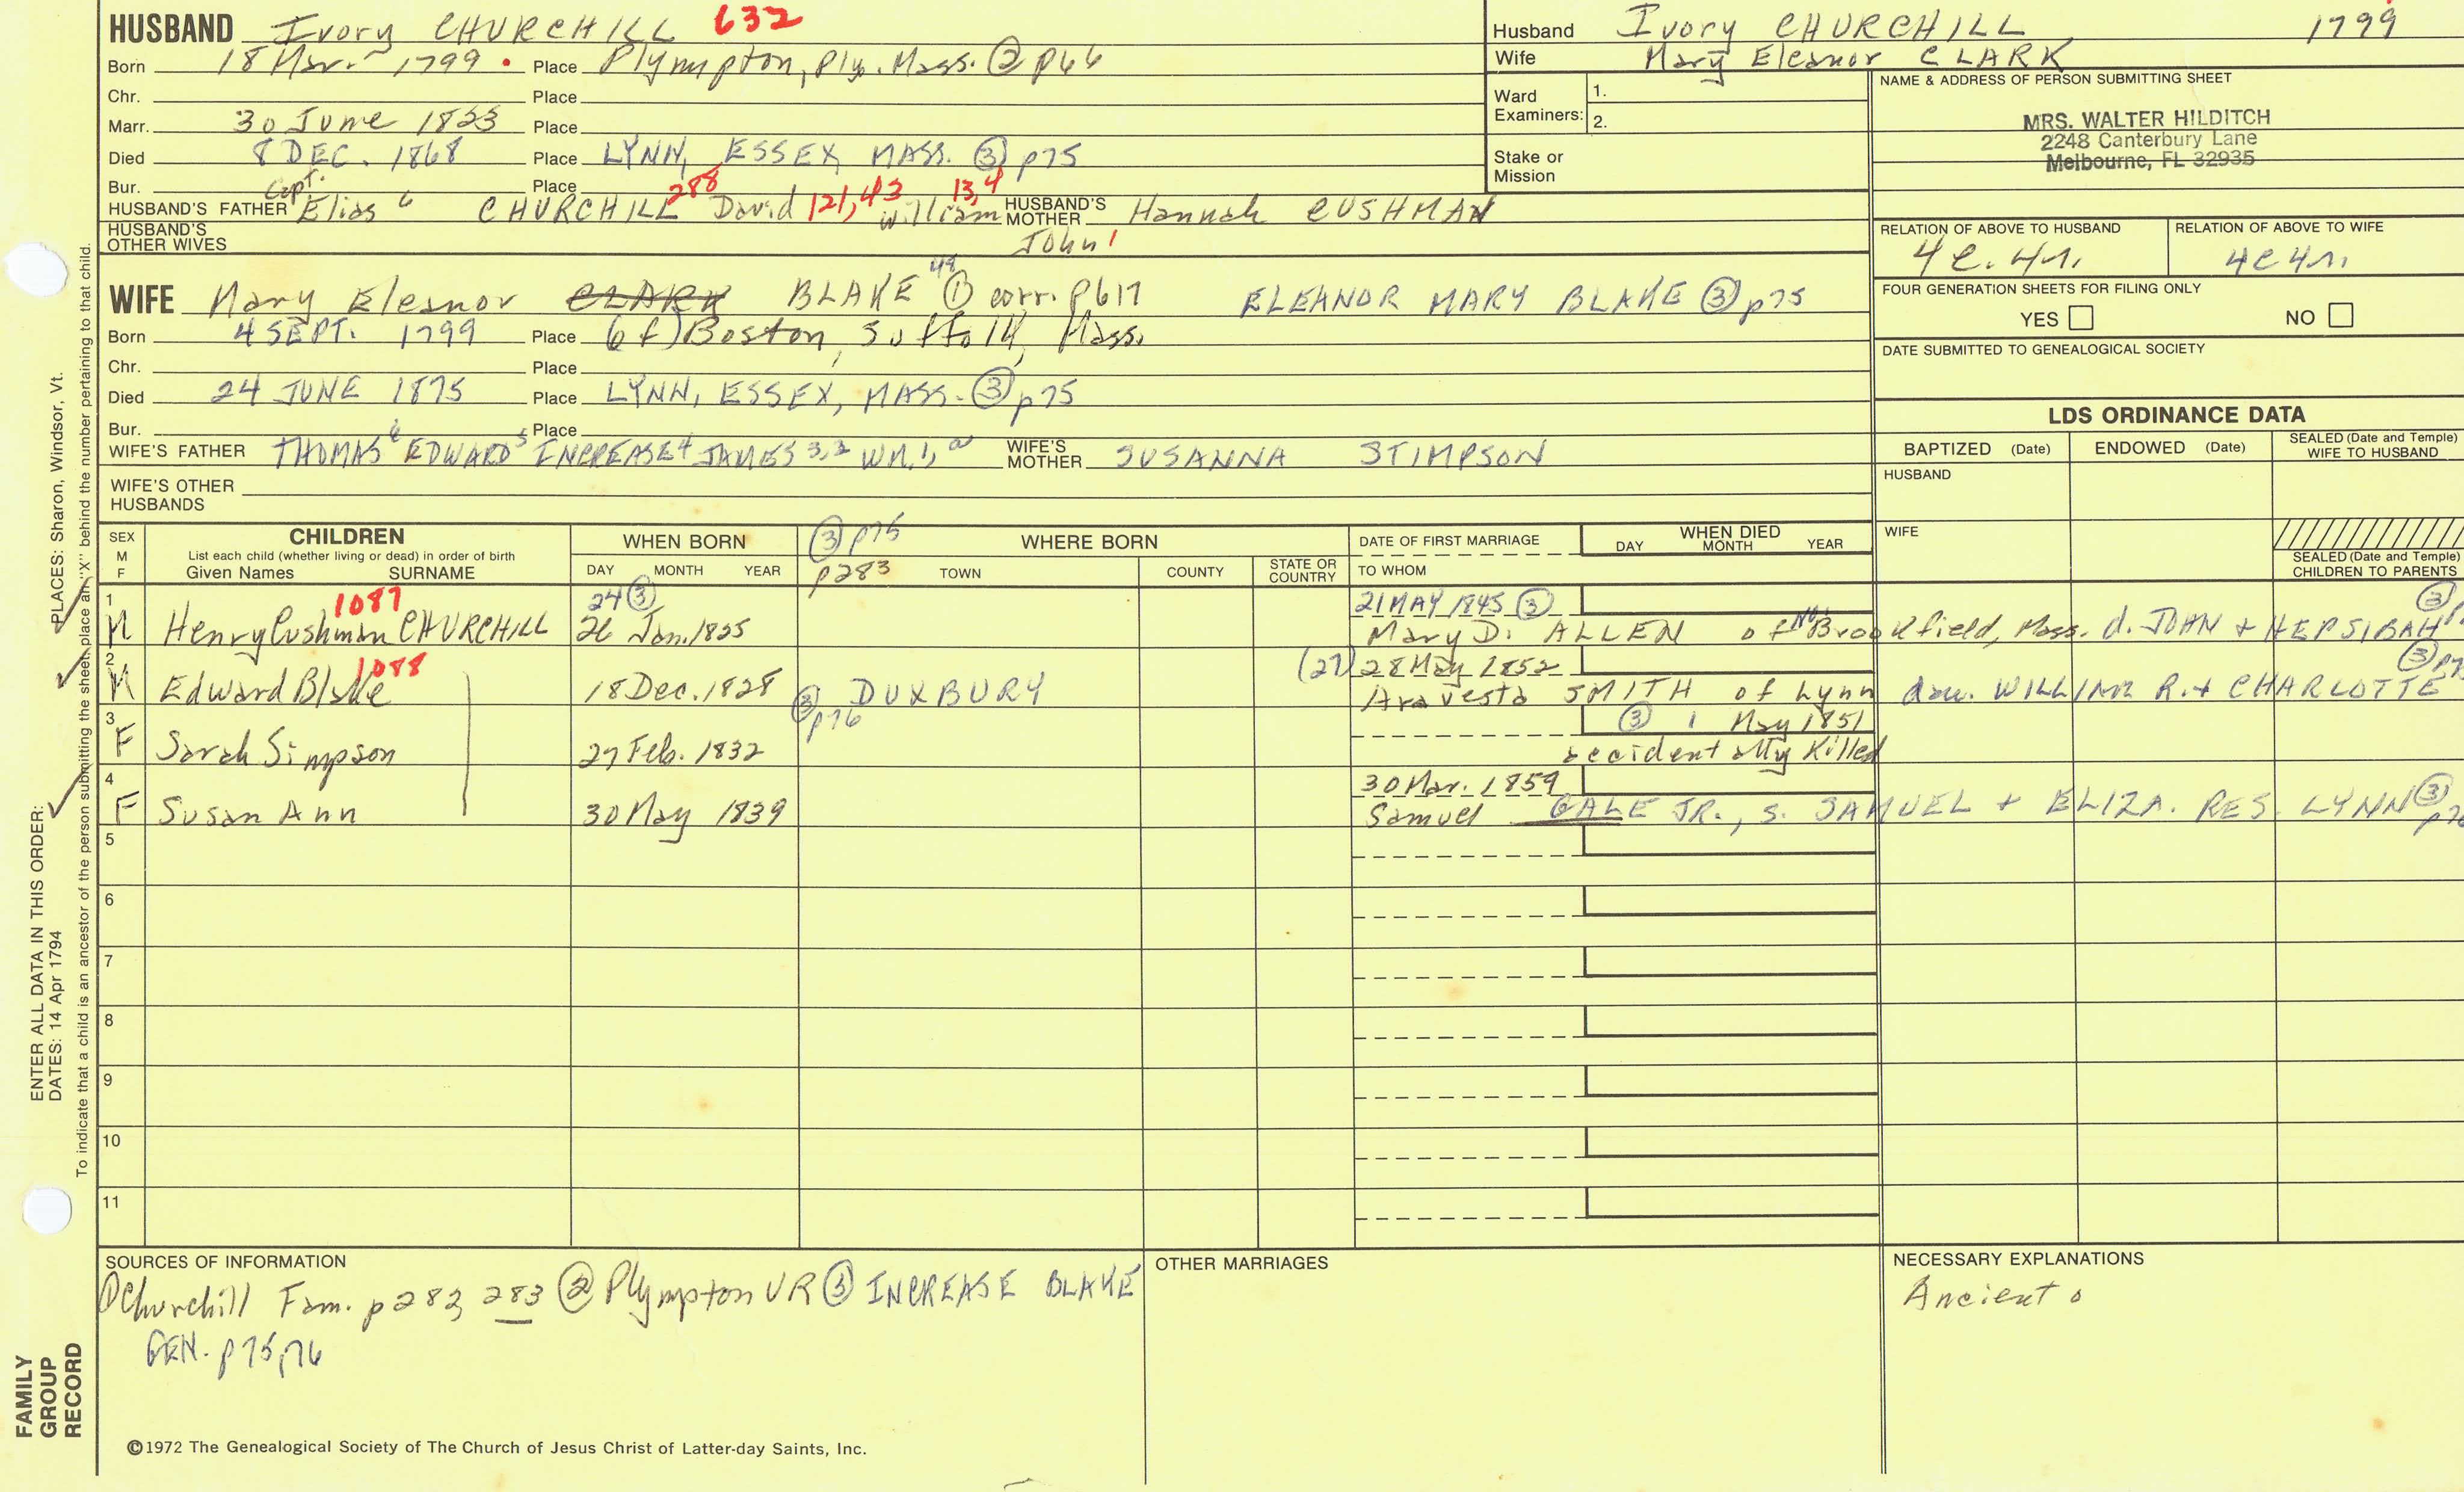 HUSBAND Ivory CHURCHILL 632
Born 18 Mar. 1799 • Place Plympton, Ply. Mass. ② p66
Chr. Place
Marr. 30 June 1823 Place
Died 8 DEC. 1868 Place LYNN, ESSEX, MASS. ③ p75
Bur. Place
HUSBAND'S FATHER Capt. Elias 6 CHURCHILL 288 David 121, 43 William 13, 4 John 1 HUSBAND'S MOTHER Hannah CUSHMAN
HUSBAND'S OTHER WIVES
WIFE Mary Eleanor CLARK BLAKE 48 ① corr. p617 ELEANOR MARY BLAKE ③ p75
Born 4 SEPT. 1799 Place (of) Boston, Suffolk, Mass.
Chr. Place
Died 24 JUNE 1875 Place LYNN, ESSEX, MASS. ③ p75
Bur. Place
WIFE'S FATHER THOMAS 6 EDWARD 5 INCREASE 4 JAMES 3,2 WM. 1, a WIFE'S MOTHER SUSANNA STIMPSON
WIFE'S OTHER HUSBANDS
Husband Ivory CHURCHILL 1799
Wife Mary Eleanor CLARK
Ward Examiners: 1.
2.
Stake or Mission
NAME & ADDRESS OF PERSON SUBMITTING SHEET
MRS. WALTER HILDITCH
2248 Canterbury Lane
Melbourne, FL 32935
RELATION OF ABOVE TO HUSBAND RELATION OF ABOVE TO WIFE
4c.4r. 4c4r.
FOUR GENERATION SHEETS FOR FILING ONLY
YES NO
DATE SUBMITTED TO GENEALOGICAL SOCIETY
LDS ORDINANCE DATA
BAPTIZED (Date) ENDOWED (Date) SEALED (Date and Temple) WIFE TO HUSBAND
HUSBAND
WIFE
SEALED (Date and Temple) CHILDREN TO PARENTS
SEX M F CHILDREN WHEN BORN ③ p75 WHERE BORN DATE OF FIRST MARRIAGE WHEN DIED
List each child (whether living or dead) in order of birth
Given Names SURNAME DAY MONTH YEAR p283 TOWN COUNTY STATE OR COUNTRY TO WHOM DAY MONTH YEAR
1 M Henry Cushman CHURCHILL 1087 24 ③ 26 Jan. 1825 21 MAY 1845 ③
Mary D. ALLEN of No. Brookfield, Mass. d. JOHN + HEPSIBAH ③
2 M Edward Blake 1088 18 Dec. 1828 ③ p76 DUXBURY (27) 28 May 1852
Aravesta SMITH of Lynn dau. WILLIAM R. + CHARLOTTE ③
3 F Sarah Simpson 27 Feb. 1832 ③ 1 May 1851
accidentally killed
4 F Susan Ann 30 May 1839 30 Mar. 1859
Samuel GALE JR., S. SAMUEL + ELIZA. RES. LYNN ③
5
6
7
8
9
10
11
SOURCES OF INFORMATION
① Churchill Fam. p282, 283 ② Plympton VR ③ INCREASE BLAKE
GEN. p75, p76
OTHER MARRIAGES
NECESSARY EXPLANATIONS
Ancient o
©1972 The Genealogical Society of The Church of Jesus Christ of Latter-day Saints, Inc.
FAMILY GROUP RECORD
ENTER ALL DATA IN THIS ORDER:
DATES: 14 Apr 1794
PLACES: Sharon, Windsor, Vt.
To indicate that a child is an ancestor of the person submitting the sheet, place an "X" behind the number pertaining to that child.